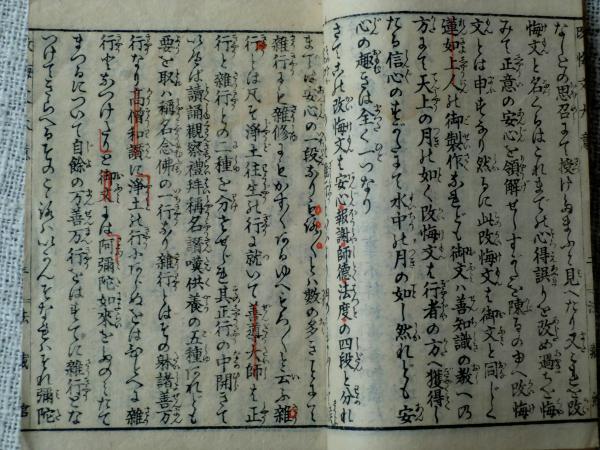 なしとの思召まて授け玉ふと見へたり又これを改
悔文と名くるはこれまての心得誤りを改め過ちを悔
みて正意の安心を領解せしすかたを陳るの由へ改悔
文とは申すなり然るに此改悔文も御文と同しく
蓮如上人の御製作なれども御文は善知識の教への
方まて天上の月の如く改悔文は行者の方へ獲得し
たる信心のすかたまて水中の月の如し然れとも安
心の趣きは全く一つなり
さてこの改悔文は安心報謝師德法度の四段と分れ
まては安心の一段なりもろ〱とは數の多きことにて
雜行とも雜修ともかす〱あるゆへもろ〱と云ふ雜
行とは凡そ淨土往生の行に就いて善導大師は正
行と雜行との二種を分ちたまへり其正行の中開きて
いへは讀誦觀察禮拜稱名讃嘆供養の五種なれとも
要を取ハ稱名念佛の一行なり雜行とはその餘の諸善万
行なり高僧和讃に淨土の行にあらぬをはひとへに雜
行となつけたりと御文には阿彌陀如來をたのみたて
まつるについて自餘の万善万行とはすてに雜行とな
つけてきらへるそのこゝろはいかんそなれはそれ彌陀